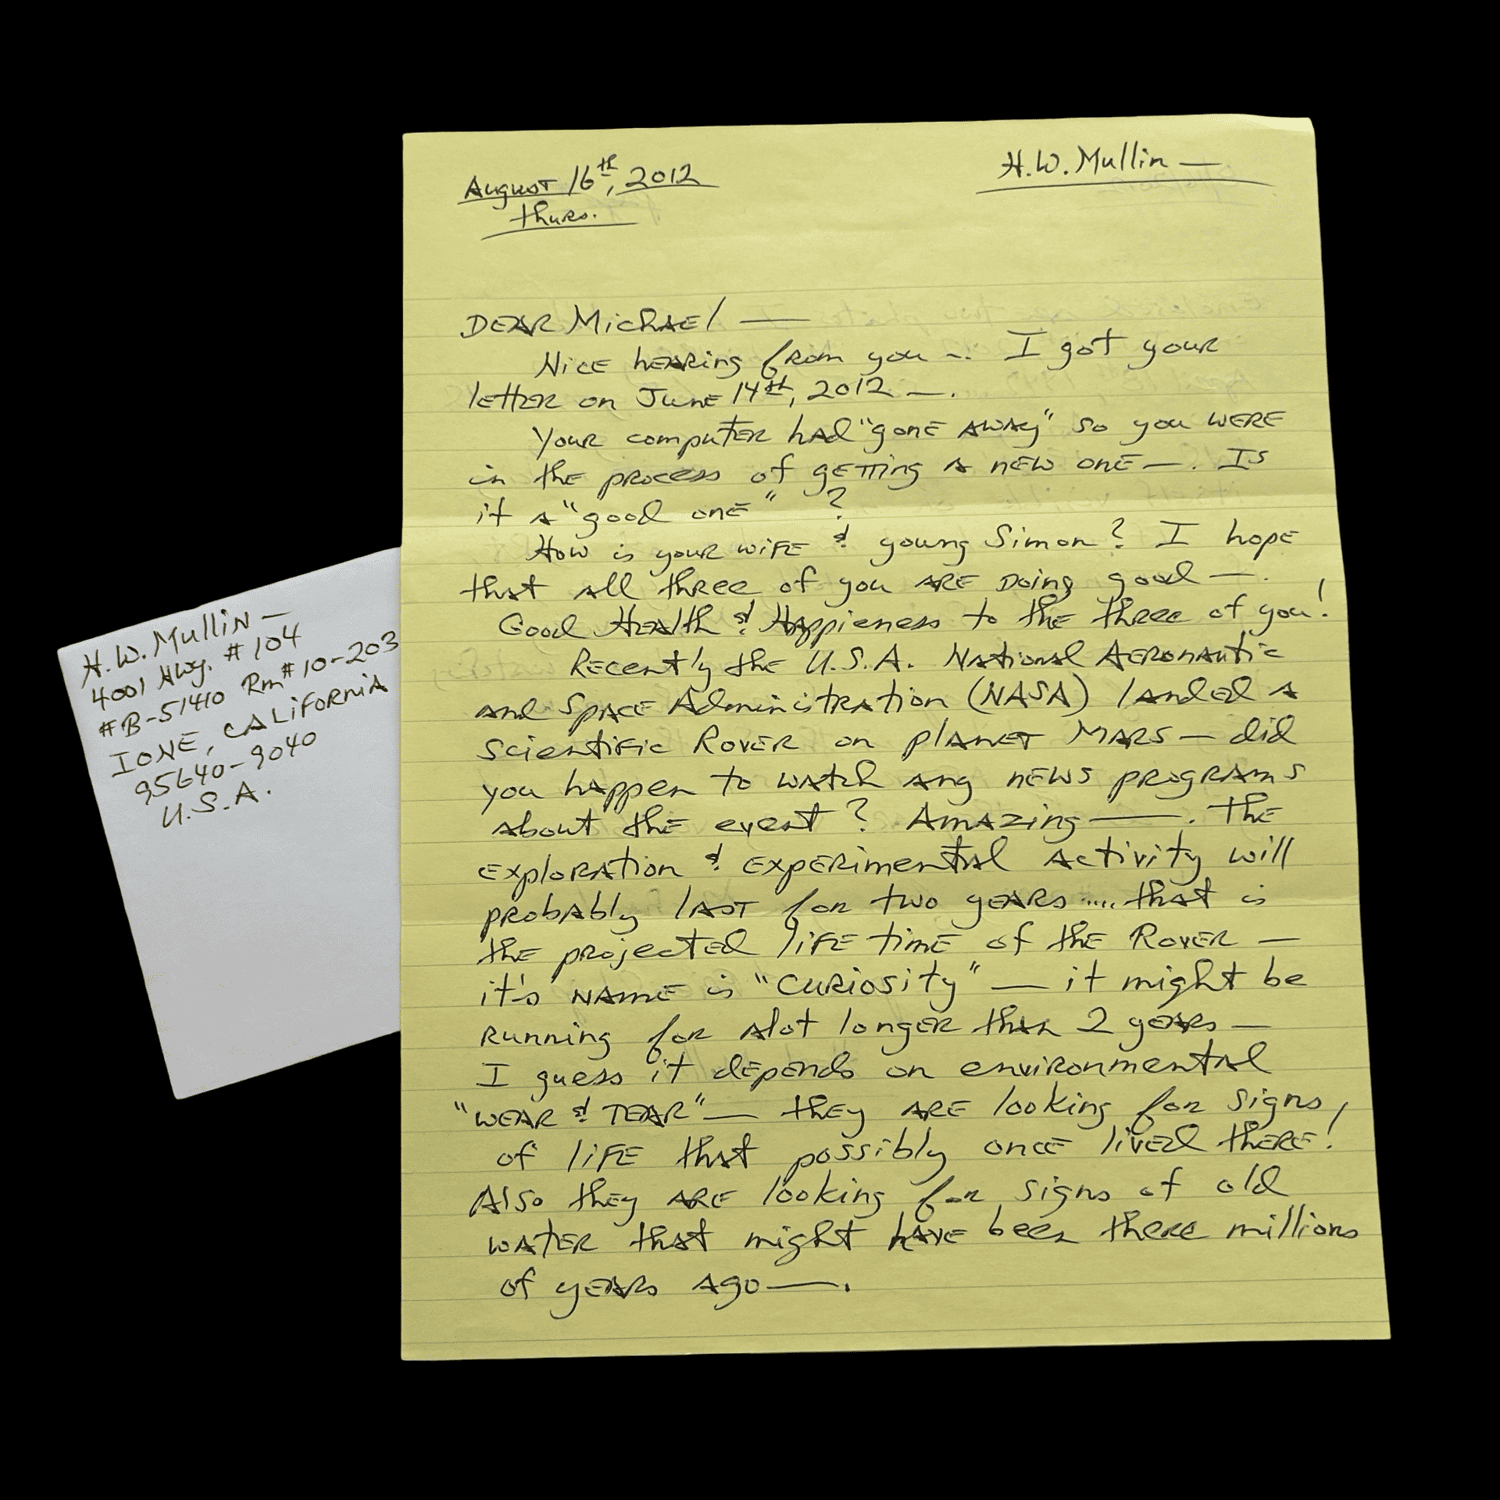 August 16th, 2012
Thurs.
H.W. Mullin —
DEAR Michael —
Nice hearing from you —. I got your
letter on June 14th, 2012 —.
Your computer had "gone away" so you were
in the process of getting a new one —. Is
it a "good one" ?
How is your wife & young Simon? I hope
that all three of you are doing good —.
Good Health & Happieness to the three of you!
Recently the U.S.A. National Aeronautic
and Space Administration (NASA) landed a
Scientific Rover on planet MARS — did
you happen to watch any news programs
about the event? Amazing —. The
exploration & experimental activity will
probably last for two years .... that is
the projected life time of the Rover —
it's name is "Curiosity" — it might be
running for alot longer than 2 years —
I guess it depends on environmental
"WEAR & TEAR" — they are looking for signs
of life that possibly once lived there!
Also they are looking for signs of old
water that might have been there millions
of years ago —.
H.W. Mullin —
4001 Hwy. #104
#B-51410 Rm#10-203
IONE, CALIFORNIA
95640-9040
U.S.A.